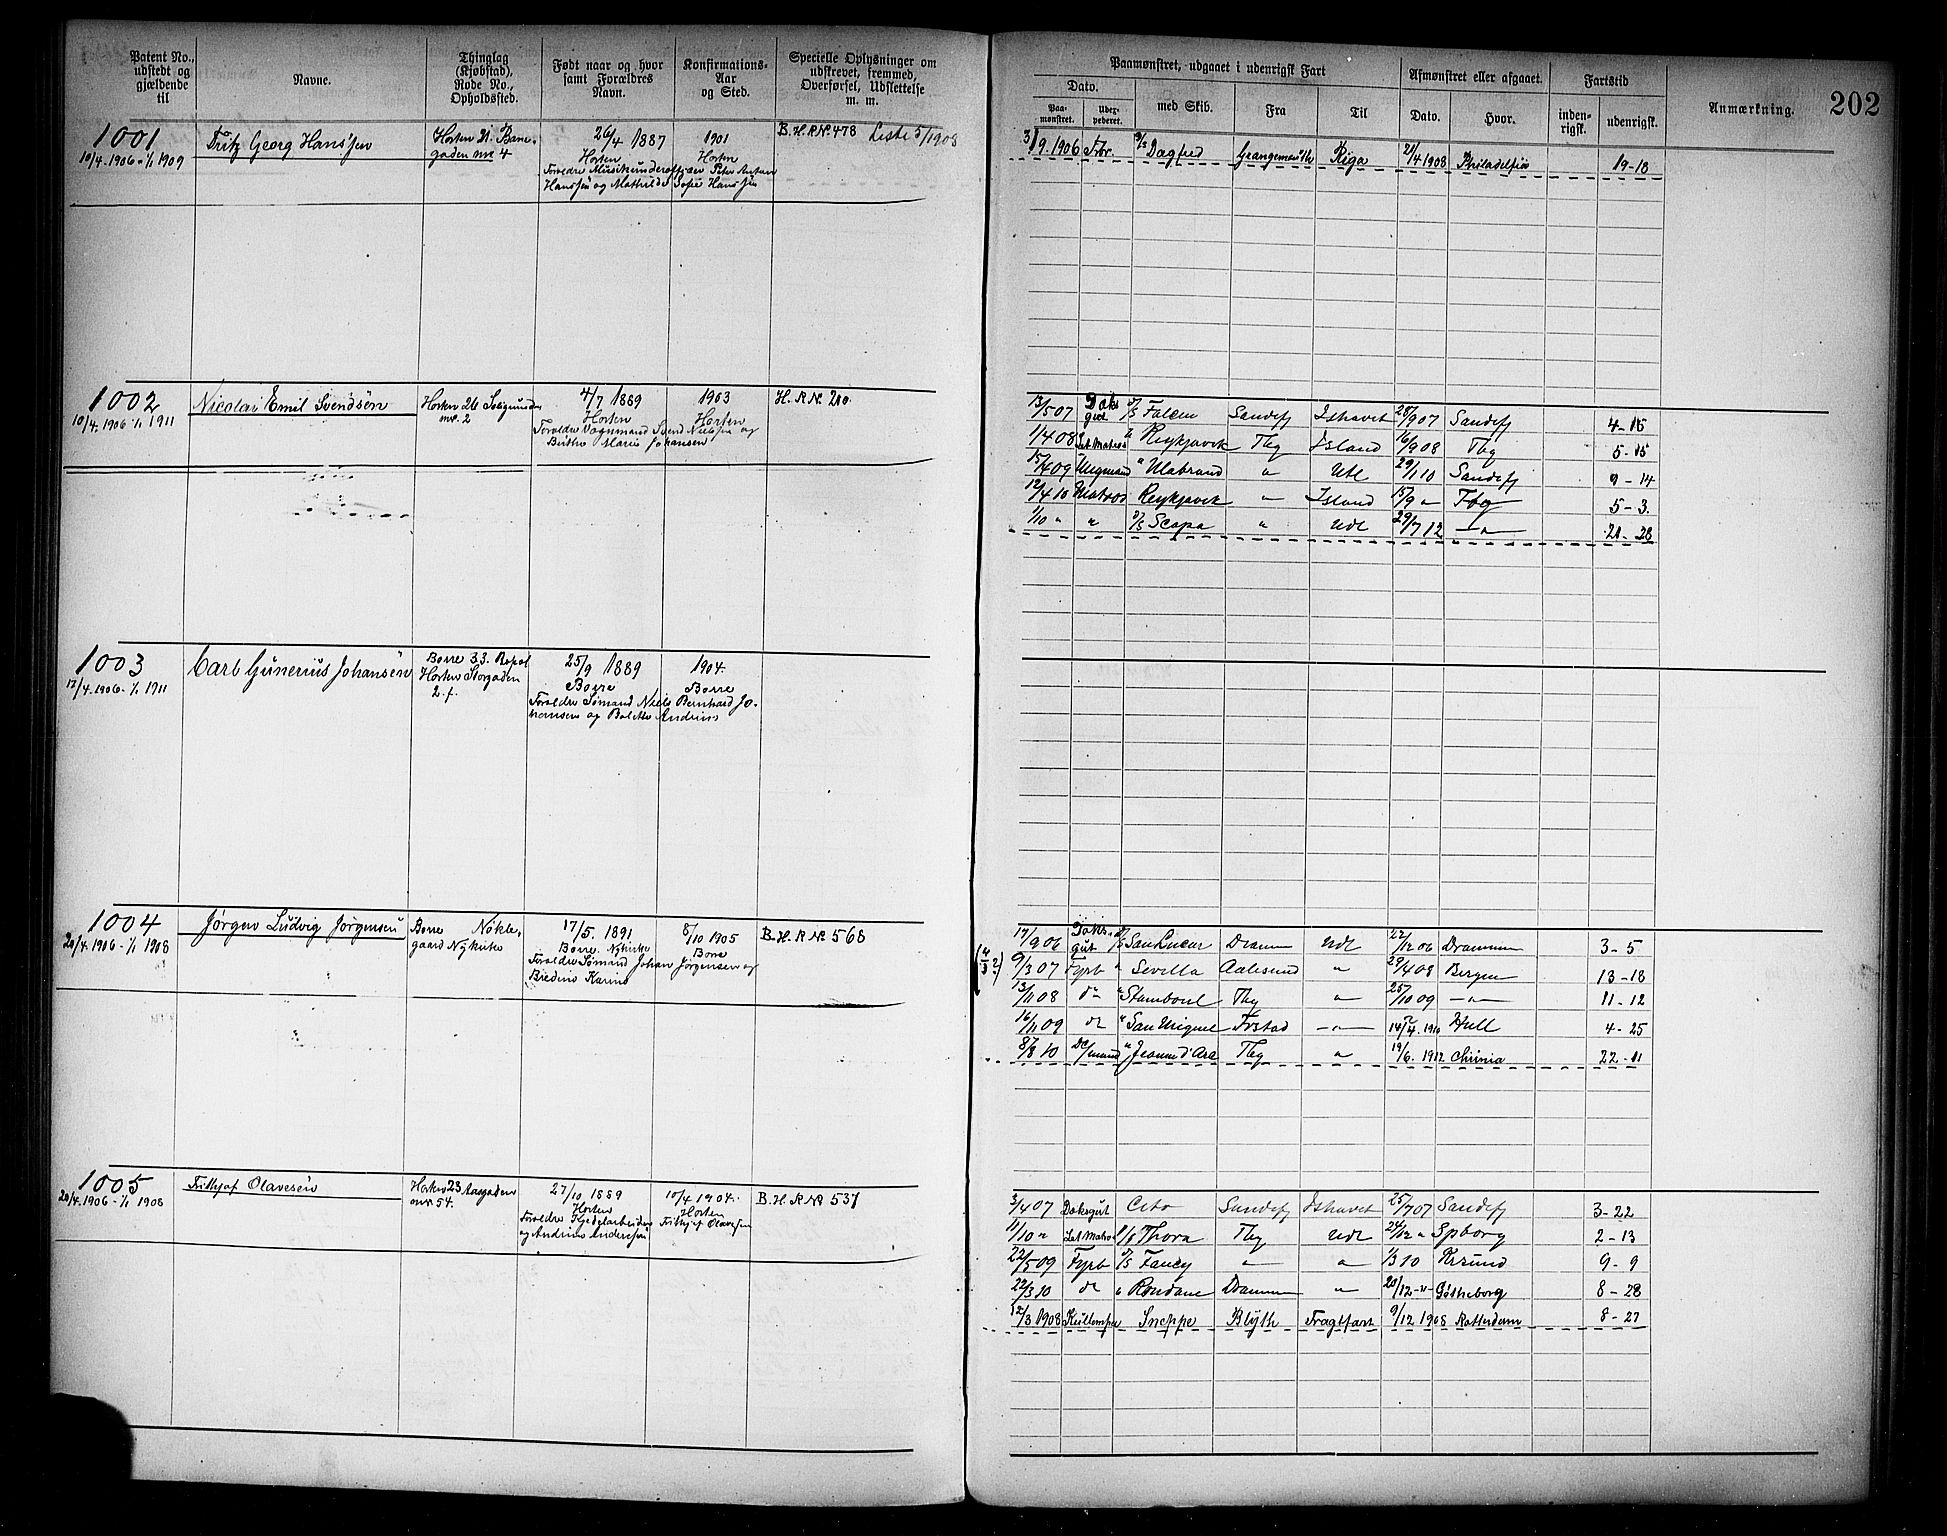 Patent No., udstedt og gjældende til
Navne.
Thinglag (Kjøbstad), Rode No., Opholdssted.
Født naar og hvor samt Forældres Navn.
Konfirmations-Aar og Sted.
Specielle Oplysninger om udskrevet, fremmed, Overførsel, Udslettelse m. m.
1001
10/4.1906-1/1 1909
Fritz Georg Hanssen
Horten 21. Banegaden nr 4
26/4 1887
Horten
Forældre Musikunderofficier Peter Anton
Hanssen og Mathilde Sofie Hanssen
1901
Horten
B.H.R.No. 478 Liste 5/1908
1002
10/4.1906-1/1 1911
Nicolai Emil Svendsen
Horten 26
nr. 2
4/7 1889
Horten
Forældre Vognmand Svend Nielsen og
Marie Johansen
1903
Horten
H. R No. 210.
1003
17/4.1906-1/1 1911
Carl Gunerius Johansen
Borre 33.
Horten Storgaden
2.f.
25/9 1889
Borre
Forældre Sømand Niels Bernhard Jo-
hansen og Andrine
1904.
Borre
1004
20/4.1906-1/1 1908
Jørgen Ludvig Jørgensen
Borre Nøkle-
gaard Nykirke
17/5. 1891
Borre. Nykirke
Forældre Sømand Johan Jørgensen og
Karine
8/10 1905
Borre
B.H.R No 568
1005
20/4.1906-1/1 1908
Frithjof Olavesen
Horten 23 Aasgaden
nr. 54.
27/10 1889
Horten
Forældre Kjedelarbeider
og Andrine Andersen
10/4 1904.
Horten
Frithjof Olavesen
B.H.R No 537
Paamønstret, udgaaet i udenrigsk Fart
Afmønstret eller afgaaet.
Fartstid
Anmærkning.
202
Dato.
Paamønstret.
med Skib.
Fra
Til
Dato.
Hvor.
indenrigsk.
udenrigsk.
3/9.1906 Fbr. D/S Dagfred Grangemouth Riga 21/4 1908 Philadelfia 19-18
13/5 07 Dæksgut D/S Falcen Sandefj Ishavet 28/9 07 Sandefj 4-15
1/4 08 Let Matros " Reykjavik Tbg Island 16/9 08 Tbg 5-15
15/4 09 Ungmand " Ulabrand " Udl 29/1 10 Sandefj 9-14
12/4 10 Matros Reykjavik " Island 15/9 " Tbg 5-3.
1/10 " " D/S Scapa " Udl 29/7 12 —"— 21-28
17/9 06 Dæksgut D/S San Lucar Dramm Udl 22/12 06 Drammen 3-5
9/3 07 Fyrb " Sevilla Aalesund " 29/4 08 Bergen 13-18
13/11 08 do " Stamboul Tbg " 25/10 09 —"— 11-12
16/11 09 do " San Miguel Frstad —"— 14/4.1910 Hull 4-25
8/8 10 " Jeanne d'Arc Tbg " 19/6.1912 Chr:nia 22-11
3/4 07 Dæksgut Cito Sandefj Ishavet 25/7 07 Sandefj 3-22
11/10 " Let Matros D/S Thora Tbg Udl 24/12 " Spborg 2-13
22/5 09 Fyrb D/S Fancy " " 1/3 10 Krsund 9-9
22/3 10 do " Rondane Dramm " 20/12 -"- Gøtheborg 8-28
12/3 1908 Kullemper Sneppe Blyth Fragtfart 9/12 1908 Rotterdam 8-27